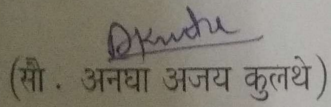 (सौ . अनघा अजय कुलथे)